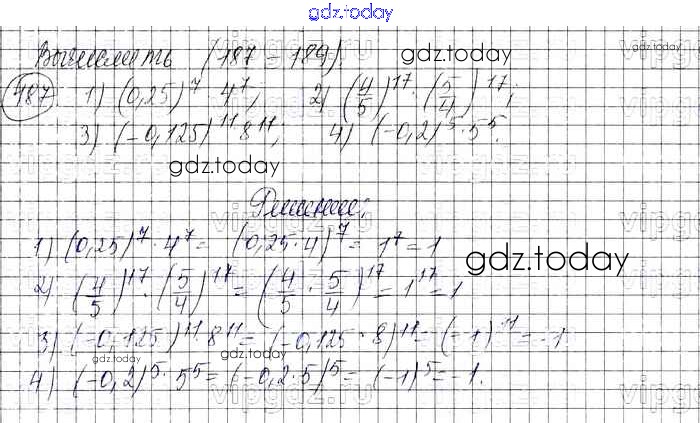 gdz.today
Вычислить (187 - 189).
gdz.today
187. 1) (0,25)^7 4^7; 2) (4/5)^17 · (5/4)^17;
3) (-0,125)^11 8^11; 4) (-0,2)^5 · 5^5.
gdz.today
Решение:
1) (0,25)^7 · 4^7 = (0,25 · 4)^7 = 1^7 = 1
gdz.today
2) (4/5)^17 · (5/4)^17 = (4/5 · 5/4)^17 = 1^17 = 1
3) (-0,125)^11 · 8^11 = (-0,125 · 8)^11 = (-1)^11 = -1
gdz.today
gdz.today
4) (-0,2)^5 · 5^5 = (-0,2 · 5)^5 = (-1)^5 = -1.